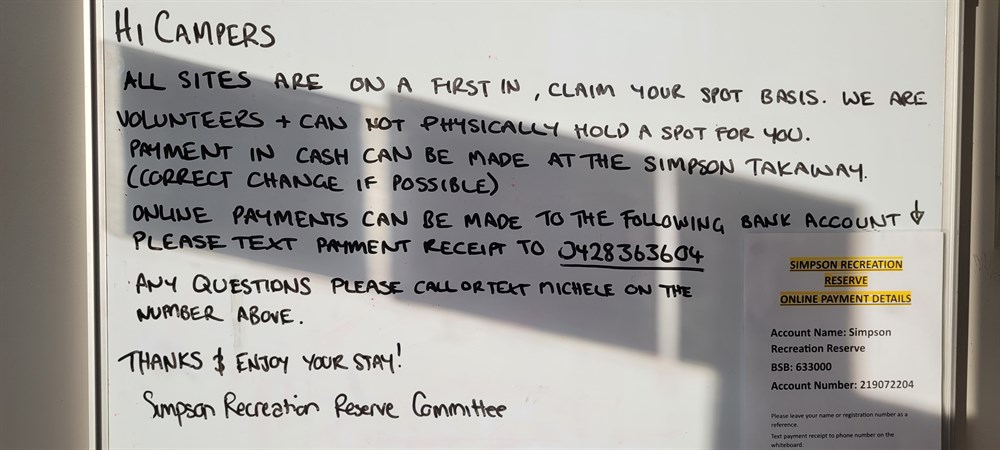 HI CAMPERS
ALL SITES ARE ON A FIRST IN, CLAIM YOUR SPOT BASIS. WE ARE
VOLUNTEERS + CAN NOT PHYSICALLY HOLD A SPOT FOR YOU.
PAYMENT IN CASH CAN BE MADE AT THE SIMPSON TAKAWAY.
(CORRECT CHANGE IF POSSIBLE)
ONLINE PAYMENTS CAN BE MADE TO THE FOLLOWING BANK ACCOUNT ↓
PLEASE TEXT PAYMENT RECEIPT TO 0428363604
ANY QUESTIONS PLEASE CALL OR TEXT MICHELE ON THE
NUMBER ABOVE.
THANKS & ENJOY YOUR STAY!
Simpson Recreation Reserve Committee
SIMPSON RECREATION
RESERVE
ONLINE PAYMENT DETAILS
Account Name: Simpson
Recreation Reserve
BSB: 633000
Account Number: 219072204
Please leave your name or registration number as a
reference.
Text payment receipt to phone number on the
whiteboard.